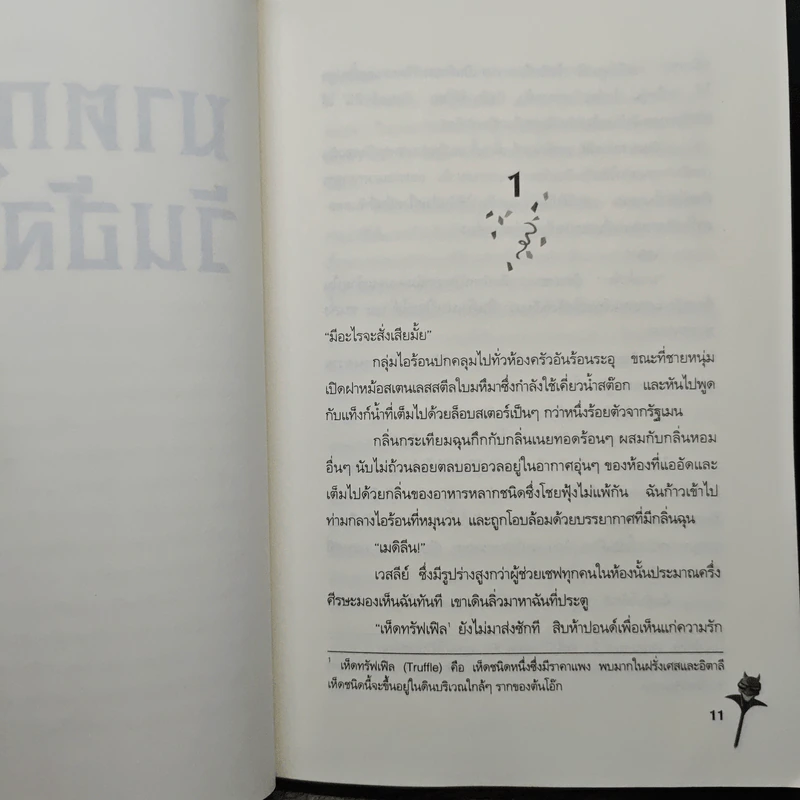 1
“มีอะไรจะสั่งเสียมั้ย”
กลุ่มไอร้อนปกคลุมไปทั่วห้องครัวอันร้อนระอุ ขณะที่ชายหนุ่ม
เปิดฝาหม้อสเตนเลสสตีลใบมหึมาซึ่งกำลังใช้เคี่ยวน้ำสต๊อก และหันไปพูด
กับแท็งก์น้ำที่เต็มไปด้วยล็อบสเตอร์เป็นๆ กว่าหนึ่งร้อยตัวจากรัฐเมน
กลิ่นกระเทียมฉุนกึกกับกลิ่นเนยทอดร้อนๆ ผสมกับกลิ่นหอม
อื่นๆ นับไม่ถ้วนลอยตลบอบอวลอยู่ในอากาศอุ่นๆ ของห้องที่แออัดและ
เต็มไปด้วยกลิ่นของอาหารหลากชนิดซึ่งโชยฟุ้งไม่แพ้กัน ฉันก้าวเข้าไป
ท่ามกลางไอร้อนที่หมุนวน และถูกโอบล้อมด้วยบรรยากาศที่มีกลิ่นฉุน
“เมดิลีน!”
เวสลีย์ ซึ่งมีรูปร่างสูงกว่าผู้ช่วยเชฟทุกคนในห้องนั้นประมาณครึ่ง
ศีรษะมองเห็นฉันทันที เขาเดินลิ่วมาหาฉันที่ประตู
“เห็ดทรัฟเฟิล¹ ยังไม่มาส่งซักที สิบห้าปอนด์เพื่อเห็นแก่ความรัก
¹ เห็ดทรัฟเฟิล (Truffle) คือ เห็ดชนิดหนึ่งซึ่งมีราคาแพง พบมากในฝรั่งเศสและอิตาลี
เห็ดชนิดนี้จะขึ้นอยู่ในดินบริเวณใกล้ๆ รากของต้นโอ๊ก
11